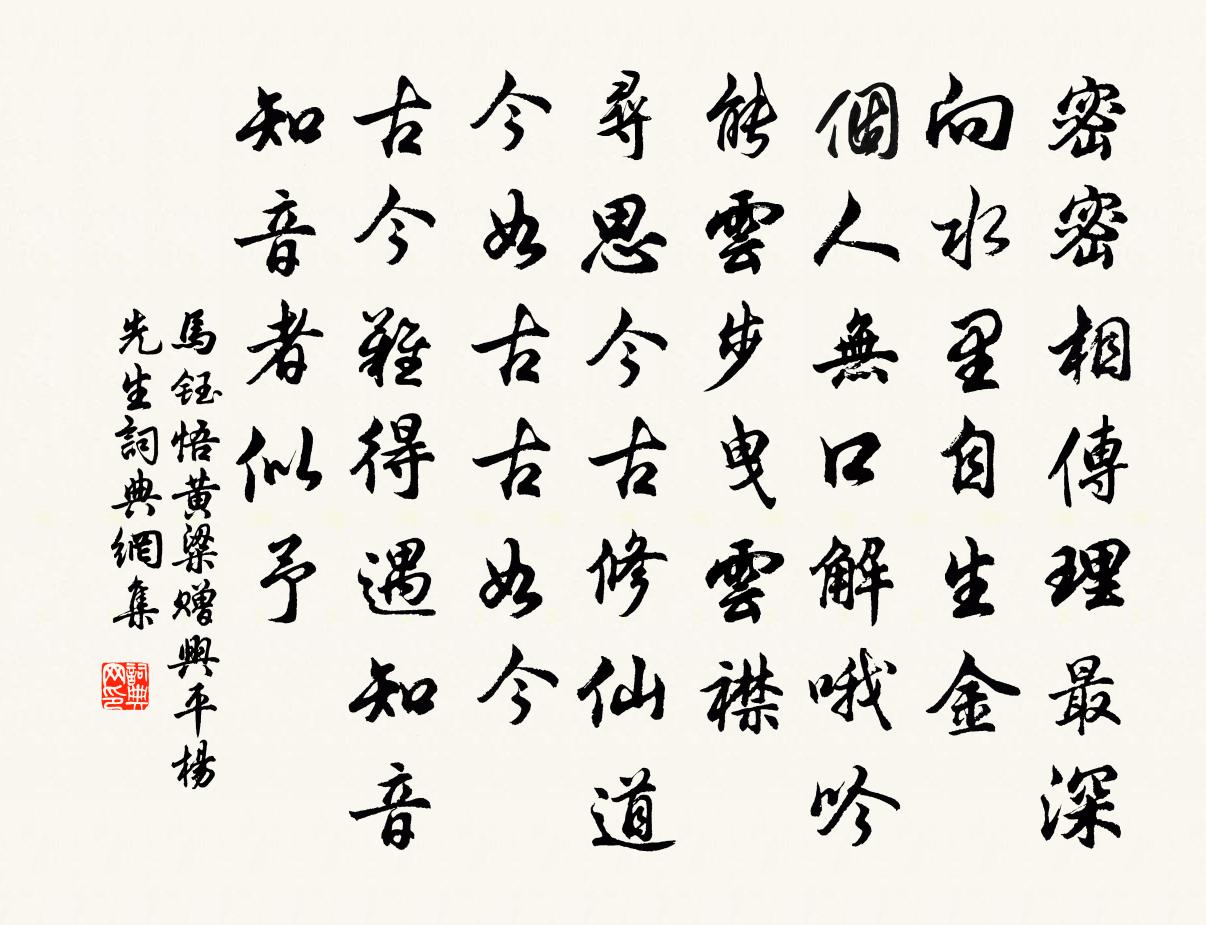 密密相傳理最深
向水里自生金
個人無口解哦吟
能雲步曳雲襟
尋思今古修仙道
今如古古如今
古今難得遇知音
知音者似予
馬鈺悟黃粱贈興平楊
先生詞典網集
詞典网印